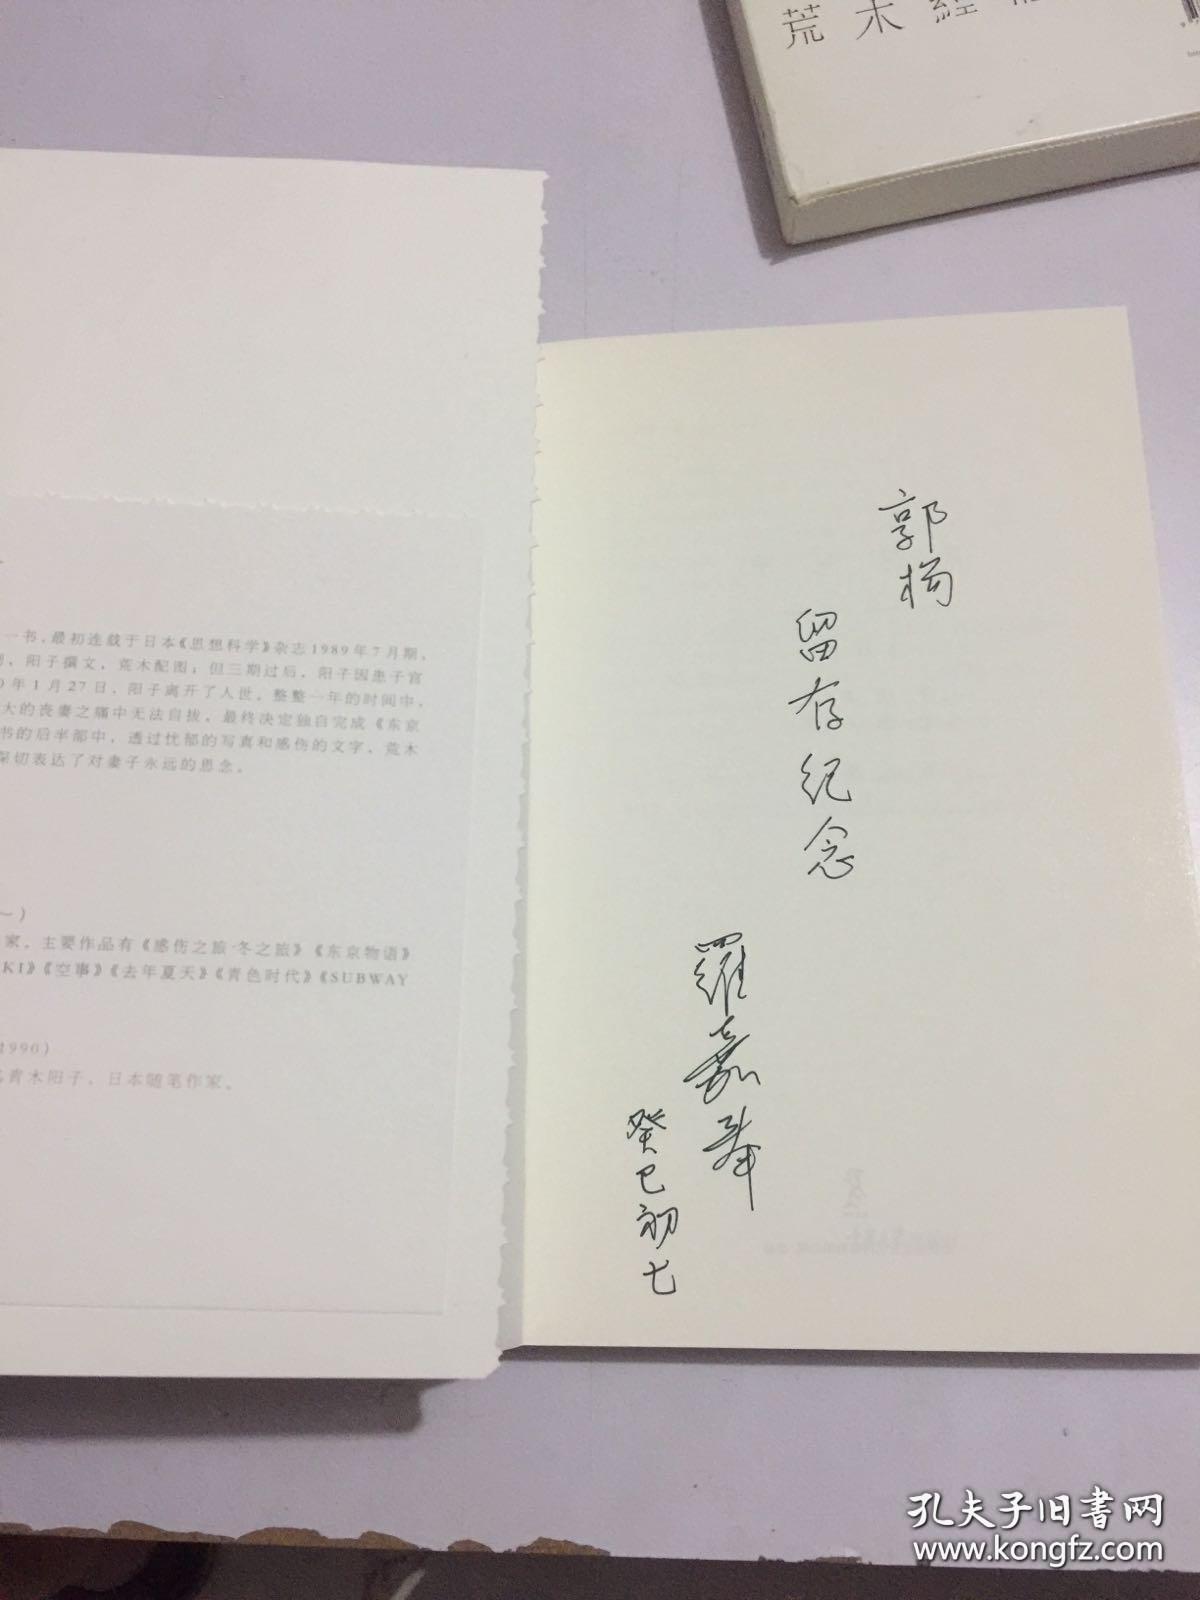 荒木經
一书，最初连载于日本《思想科学》杂志1989年7月期，
阳子撰文，荒木配图；但三期过后，阳子因患子宫
0年1月27日，阳子离开了人世，整整一年的时间中，
大的丧妻之痛中无法自拔，最终决定独自完成《东京
书的后半部中，透过忧郁的写真和感伤的文字，荒木
深切表达了对妻子永远的思念。
～）
家，主要作品有《感伤之旅·冬之旅》《东京物语》
KI》《空事》《去年夏天》《青色时代》《SUBWAY
1990）
名青木阳子，日本随笔作家。
郭杨
留存纪念
羅嘉華
癸巳初七
孔夫子旧书网
www.kongfz.com